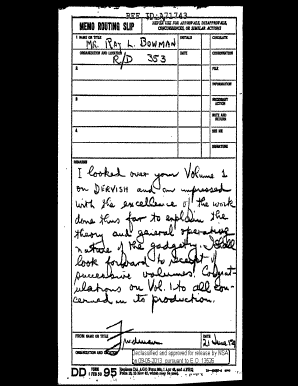 REF ID:A71743
MEMO ROUTING SLIP
NEVER USE FOR APPROVALS, DISAPPROVALS,
CONCURRENCES, OR SIMILAR ACTIONS
1 NAME OR TITLE
INITIALS
CIRCULATE
Mr. Ray L. Bowman
ORGANIZATION AND LOCATION
DATE
COORDINATION
R/D 353
2
FILE
INFORMATION
3
NECESSARY
ACTION
NOTE AND
RETURN
4
SEE ME
SIGNATURE
REMARKS
I looked over your Volume 1
on DERVISH and am impressed
with the excellence of the work
done thus far to explain the
theory and general operative
nature of the gadgetry. I shall
look forward to receipt of
successive volumes. Congrat-
ulations on Vol. 1 to all con-
cerned in its production.
FROM NAME OR TITLE
Friedman
DATE
21 June
ORGANIZATION AND
Declassified and approved for release by NSA
on 09-05-2013 pursuant to E.O. 13526
DD FORM 95
1 FEB 50